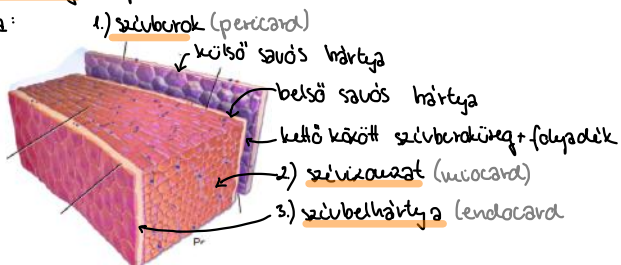 a:
1.) szívburok (pericard)
külső savós hártya
belső savós hártya
kettő között szívburoküreg + folyadék
2) szívizomzat (miocard)
3.) szívbelhártya (endocard
Pr